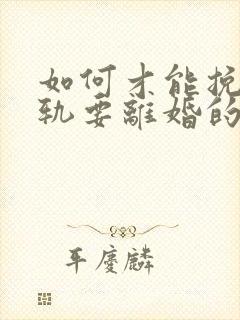 如何才能挽
轨要離婚的
平慶麟